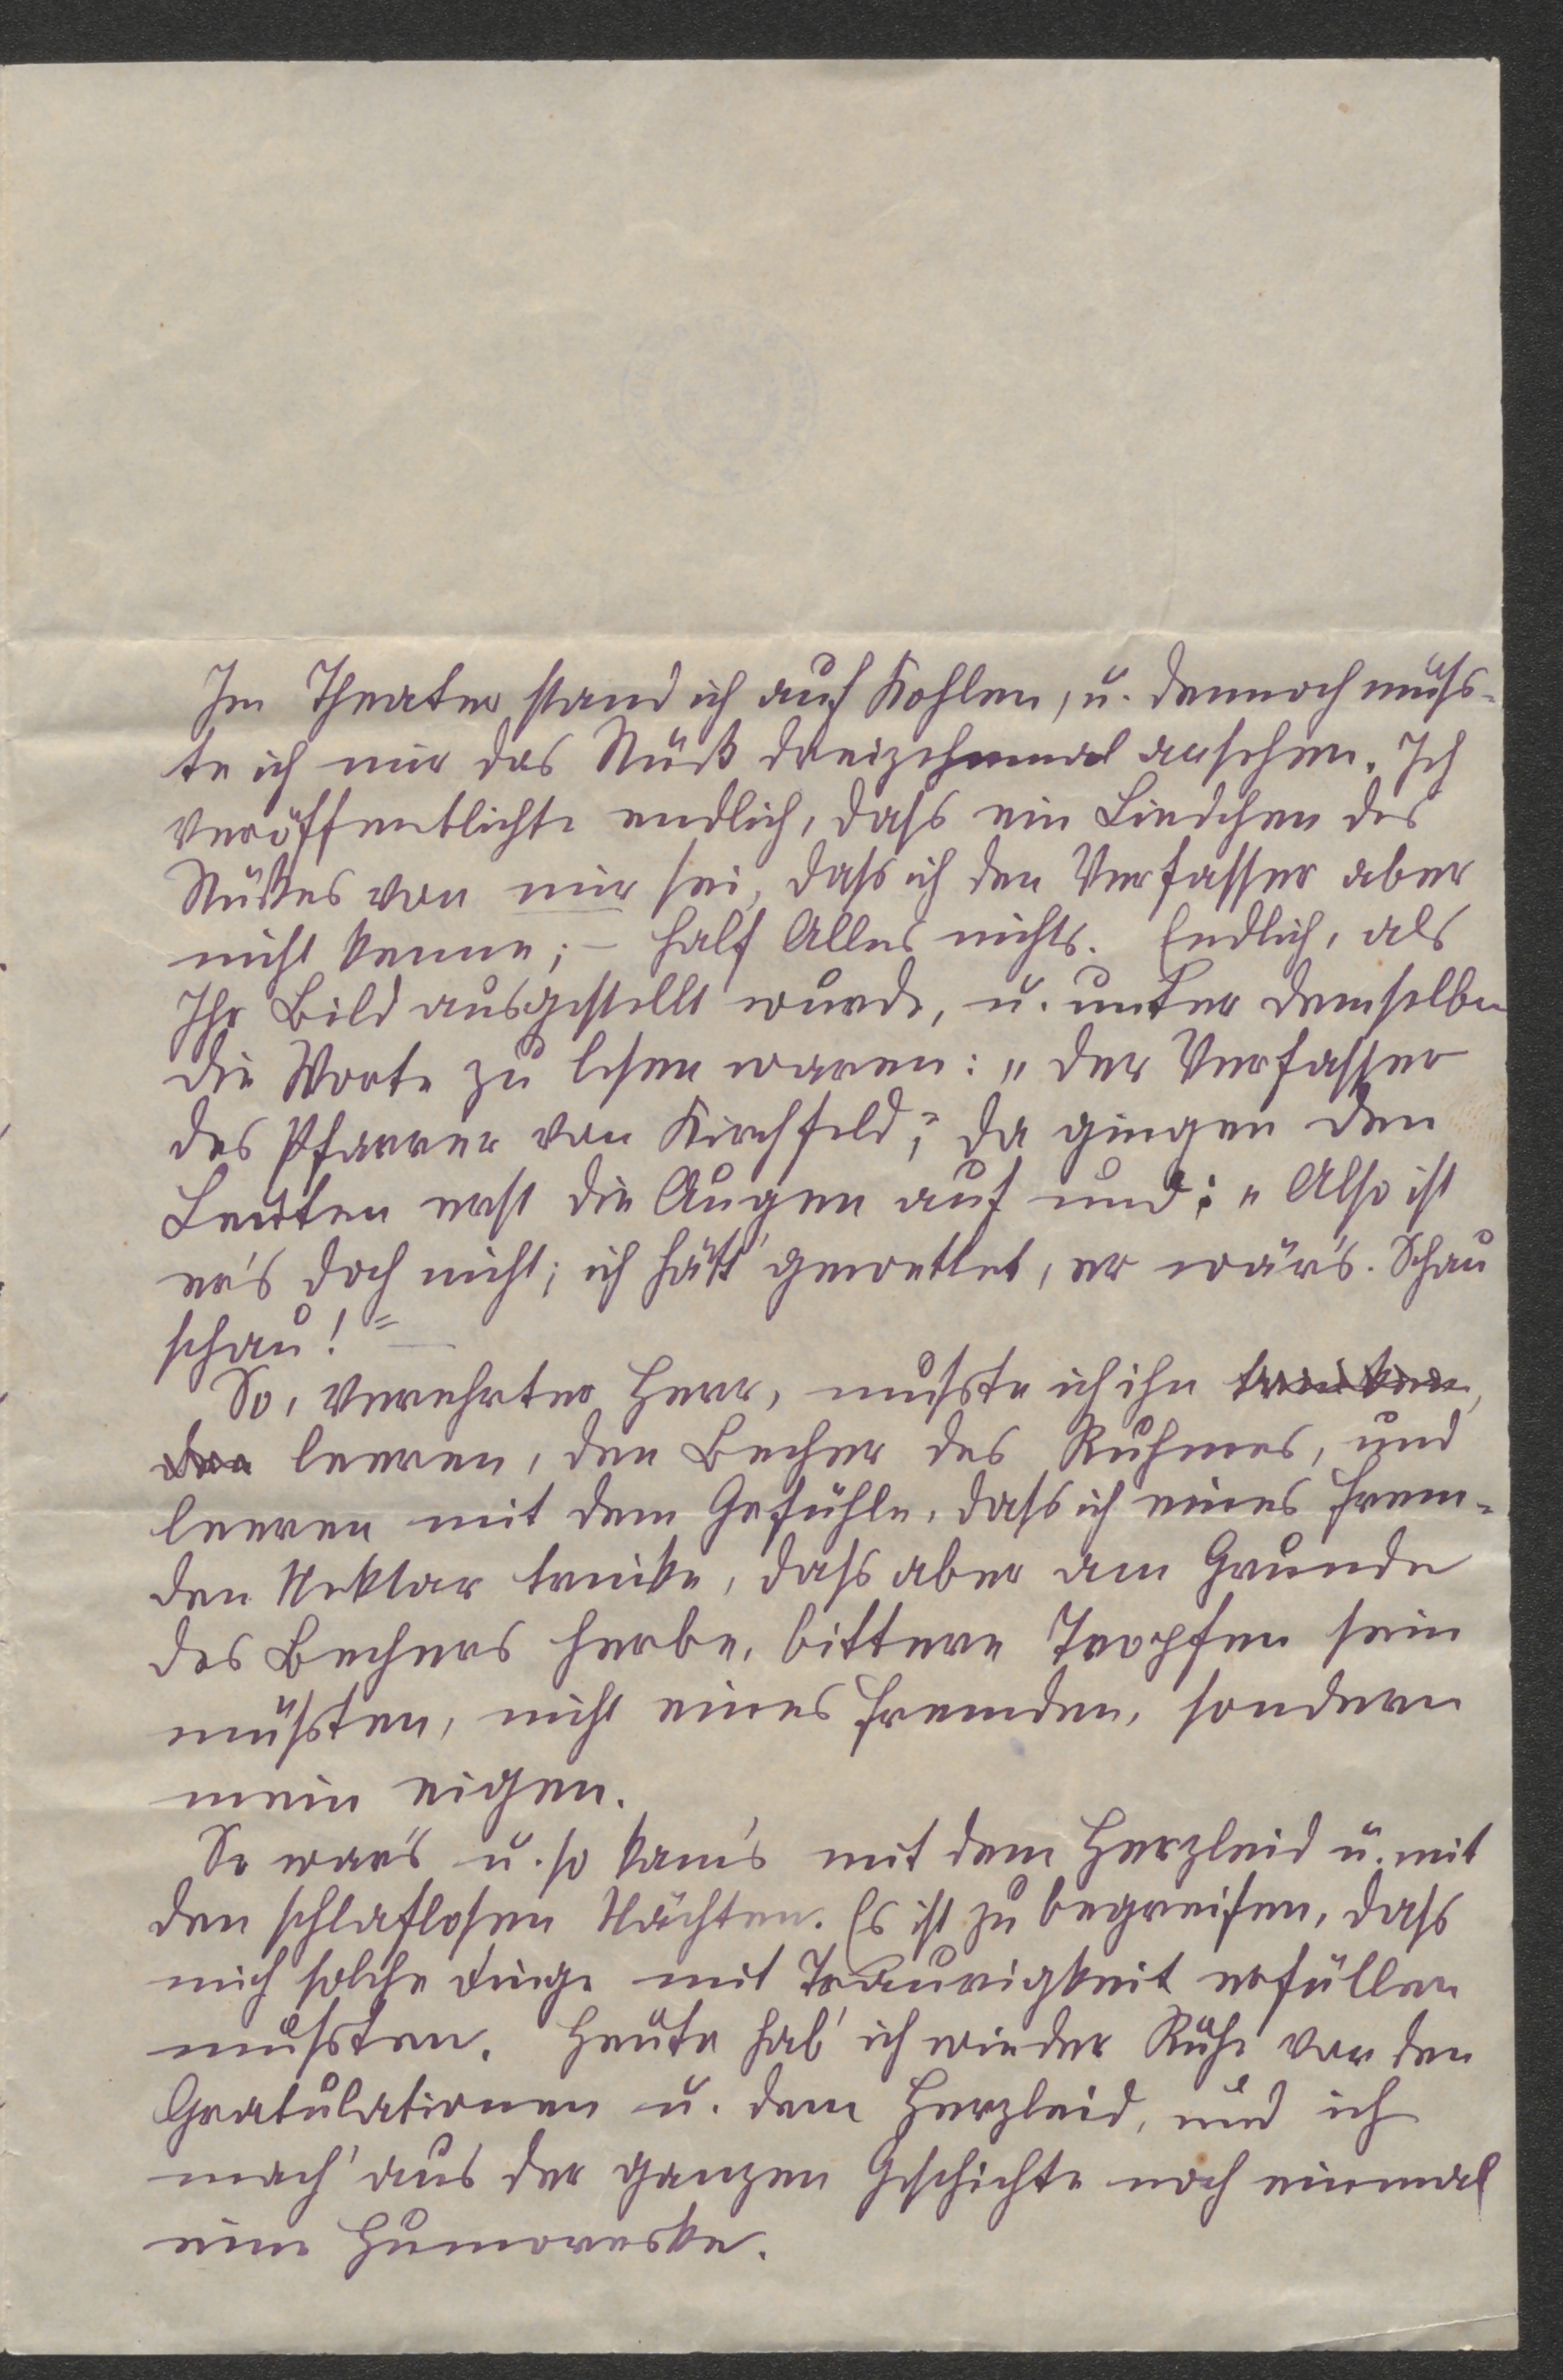 Im Theater stand ich auf Kohlen, u. dennoch muss-
te ich mir das Stück dreizehnmal ansehen. Ich
veröffentlichte endlich, dass ein Liedchen des
Stückes von mir sei, dass ich den Verfasser aber
nicht kenne; – half Alles nichts. Endlich, als
Ihr Bild ausgestellt wurde, u. unter demselben
die Worte zu lesen waren: „Der Verfasser
des Pfarrer von Kirchfeld“, da gingen den
Leuten erst die Augen auf und: „Also ist
er's doch nicht; ich hätt' gewettet, er wär's. Schau
schau!“ –
So, verehrter Herr, musste ich ihn trinken,
den leeren, den Becher des Ruhmes, und
leeren mit dem Gefühle, dass ich eines Frem-
den Nektar trinke, dass aber am Grunde
des Bechers herbe, bittere Tropfen sein
müssten, nicht eines Fremden, sondern
mein eigen.
So war's u. so kam's mit dem Herzleid u. mit
den schlaflosen Nächten. Es ist zu begreifen, dass
mich solche Dinge mit Traurigkeit erfüllen
mussten. Heute hab' ich wieder Ruhe vor den
Gratulationen u. dem Herzleid, und ich
mach' aus der ganzen Geschichte noch einmal
eine Humoreske.